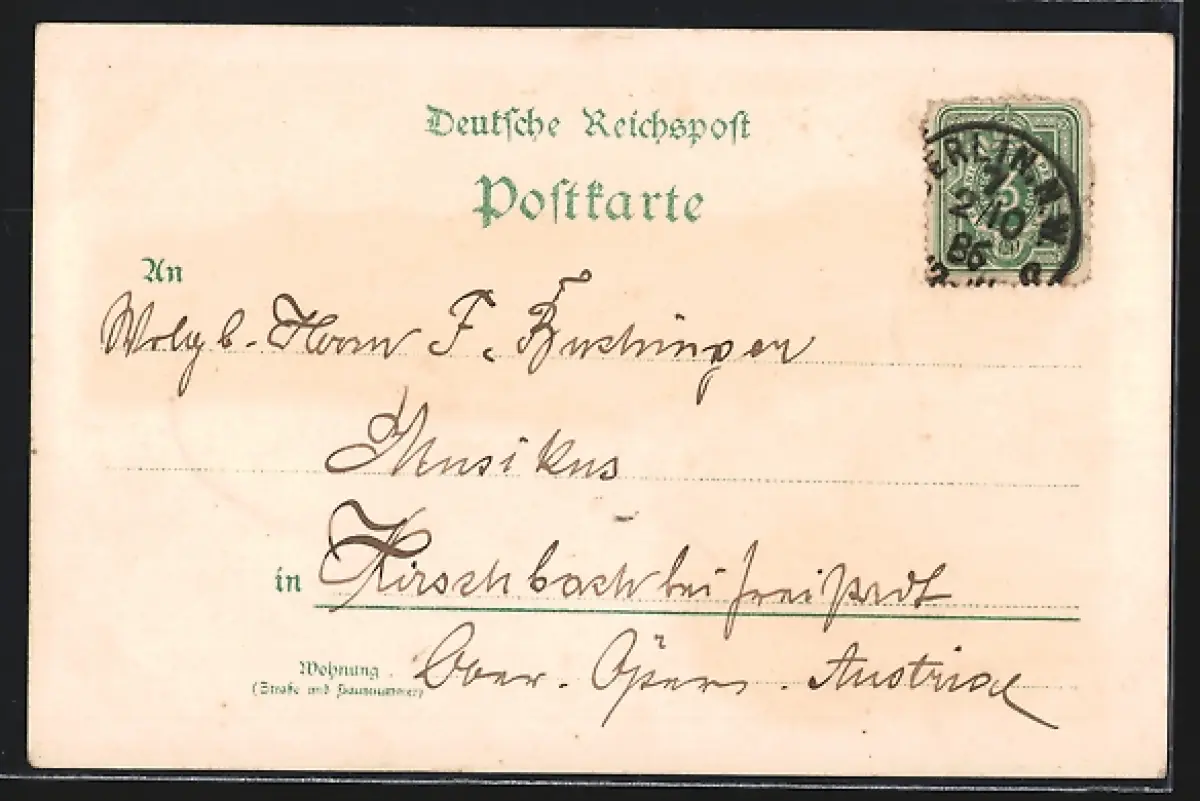 Deutsche Reichspost
Postkarte
BERLIN. N.W.
2/10
86
5
An
Wolgb. Herrn F.
Musikus
in Kirschbach bei
Wohnung Ober. Austria
(Straße und Hausnummer)